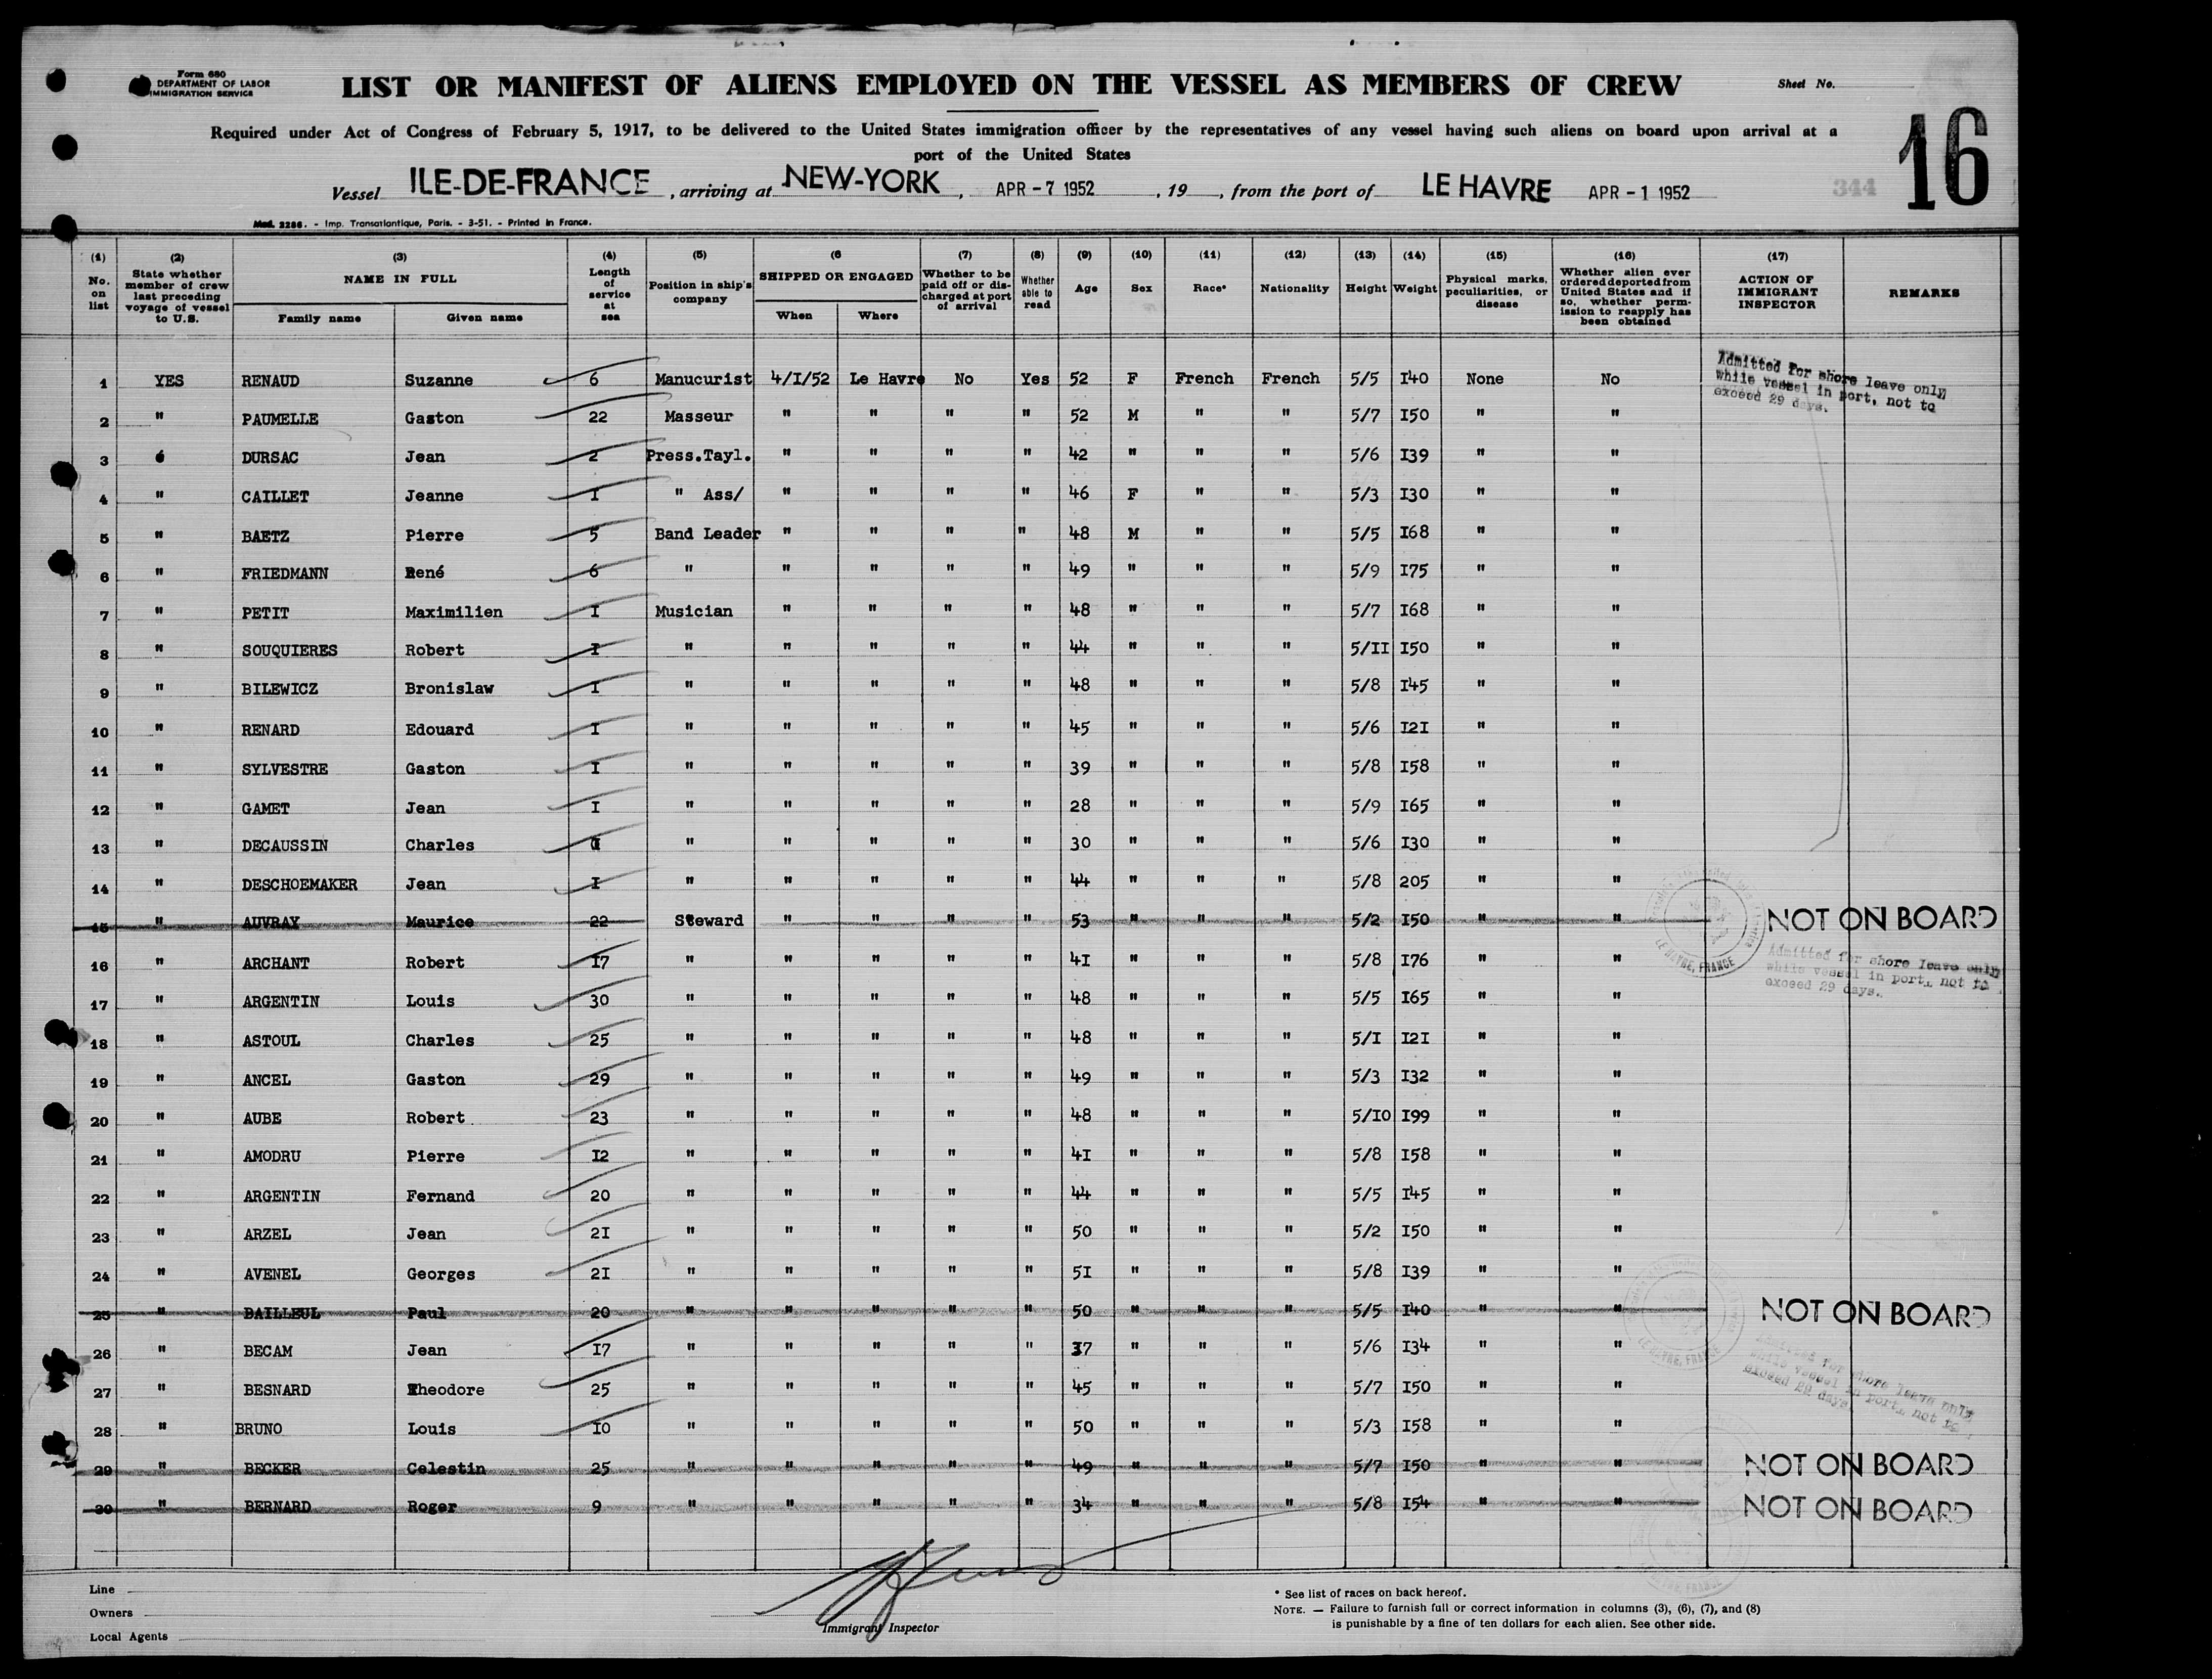 Form 680
DEPARTMENT OF LABOR
IMMIGRATION SERVICE
LIST OR MANIFEST OF ALIENS EMPLOYED ON THE VESSEL AS MEMBERS OF CREW
Sheet No.
16
Required under Act of Congress of February 5, 1917, to be delivered to the United States immigration officer by the representatives of any vessel having such aliens on board upon arrival at a
port of the United States
Vessel ILE-DE-FRANCE, arriving at NEW-YORK, APR - 7 1952, 19 , from the port of LE HAVRE APR - 1 1952
344
Mod. 2286. - Imp. Transatlantique, Paris. - 3-51. - Printed in France.
(1) No. on list
(2) State whether member of crew last preceding voyage of vessel to U.S.
(3) NAME IN FULL
Family name Given name
(4) Length of service at sea
(5) Position in ship's company
(6 SHIPPED OR ENGAGED
When Where
(7) Whether to be paid off or discharged at port of arrival
(8) Whether able to read
(9) Age
(10) Sex
(11) Race*
(12) Nationality
(13) Height
(14) Weight
(15) Physical marks, peculiarities, or disease
(16) Whether alien ever ordered deported from United States and if so, whether permission to reapply has been obtained
(17) ACTION OF IMMIGRANT INSPECTOR
REMARKS
1 YES RENAUD Suzanne 6 Manucurist 4/I/52 Le Havre No Yes 52 F French French 5/5 I40 None No
Admitted for shore leave only
while vessel in port, not to
exceed 29 days.
2 " PAUMELLE Gaston 22 Masseur " " " " 52 M " " 5/7 I50 " "
3 DURSAC Jean 2 Press.Tayl. " " " " 42 " " " 5/6 I39 " "
4 " CAILLET Jeanne I " Ass/ " " " " 46 F " " 5/3 I30 " "
5 " BAETZ Pierre 5 Band Leader " " " " 48 M " " 5/5 I68 " "
6 " FRIEDMANN René 6 " " " " " 49 " " " 5/9 I75 " "
7 " PETIT Maximilien I Musician " " " " 48 " " " 5/7 I68 " "
8 " SOUQUIERES Robert I " " " " " 44 " " " 5/II I50 " "
9 " BILEWICZ Bronislaw I " " " " " 48 " " " 5/8 I45 " "
10 " RENARD Edouard I " " " " " 45 " " " 5/6 I2I " "
11 " SYLVESTRE Gaston I " " " " " 39 " " " 5/8 I58 " "
12 " GAMET Jean I " " " " " 28 " " " 5/9 I65 " "
13 " DECAUSSIN Charles I " " " " " 30 " " " 5/6 I30 " "
14 " DESCHOEMAKER Jean I " " " " " 44 " " " 5/8 205 " "
15 " AUVRAY Maurice 22 Steward " " " " 53 " " " 5/2 I50 " " NOT ON BOARD
LE HAVRE, FRANCE
Admitted for shore leave only
while vessel in port, not to
exceed 29 days.
16 " ARCHANT Robert I7 " " " " " 4I " " " 5/8 I76 " "
17 " ARGENTIN Louis 30 " " " " " 48 " " " 5/5 I65 " "
18 " ASTOUL Charles 25 " " " " " 48 " " " 5/I I2I " "
19 " ANCEL Gaston 29 " " " " " 49 " " " 5/3 I32 " "
20 " AUBE Robert 23 " " " " " 48 " " " 5/I0 I99 " "
21 " AMODRU Pierre I2 " " " " " 4I " " " 5/8 I58 " "
22 " ARGENTIN Fernand 20 " " " " " 44 " " " 5/5 I45 " "
23 " ARZEL Jean 2I " " " " " 50 " " " 5/2 I50 " "
24 " AVENEL Georges 2I " " " " " 5I " " " 5/8 I39 " "
25 " BAILLEUL Paul 20 " " " " " 50 " " " 5/5 I40 " " NOT ON BOARD
LE HAVRE, FRANCE
Admitted for shore leave only
while vessel in port, not to
exceed 29 days.
26 " BECAM Jean I7 " " " " " 37 " " " 5/6 I34 " "
27 " BESNARD Theodore 25 " " " " " 45 " " " 5/7 I50 " "
28 " BRUNO Louis I0 " " " " " 50 " " " 5/3 I58 " "
29 " BECKER Celestin 25 " " " " " 49 " " " 5/7 I50 " " NOT ON BOARD
30 " BERNARD Roger 9 " " " " " 34 " " " 5/8 I54 " " NOT ON BOARD
Line
Owners
Local Agents
Immigrant Inspector
* See list of races on back hereof.
NOTE. — Failure to furnish full or correct information in columns (3), (6), (7), and (8)
is punishable by a fine of ten dollars for each alien. See other side.